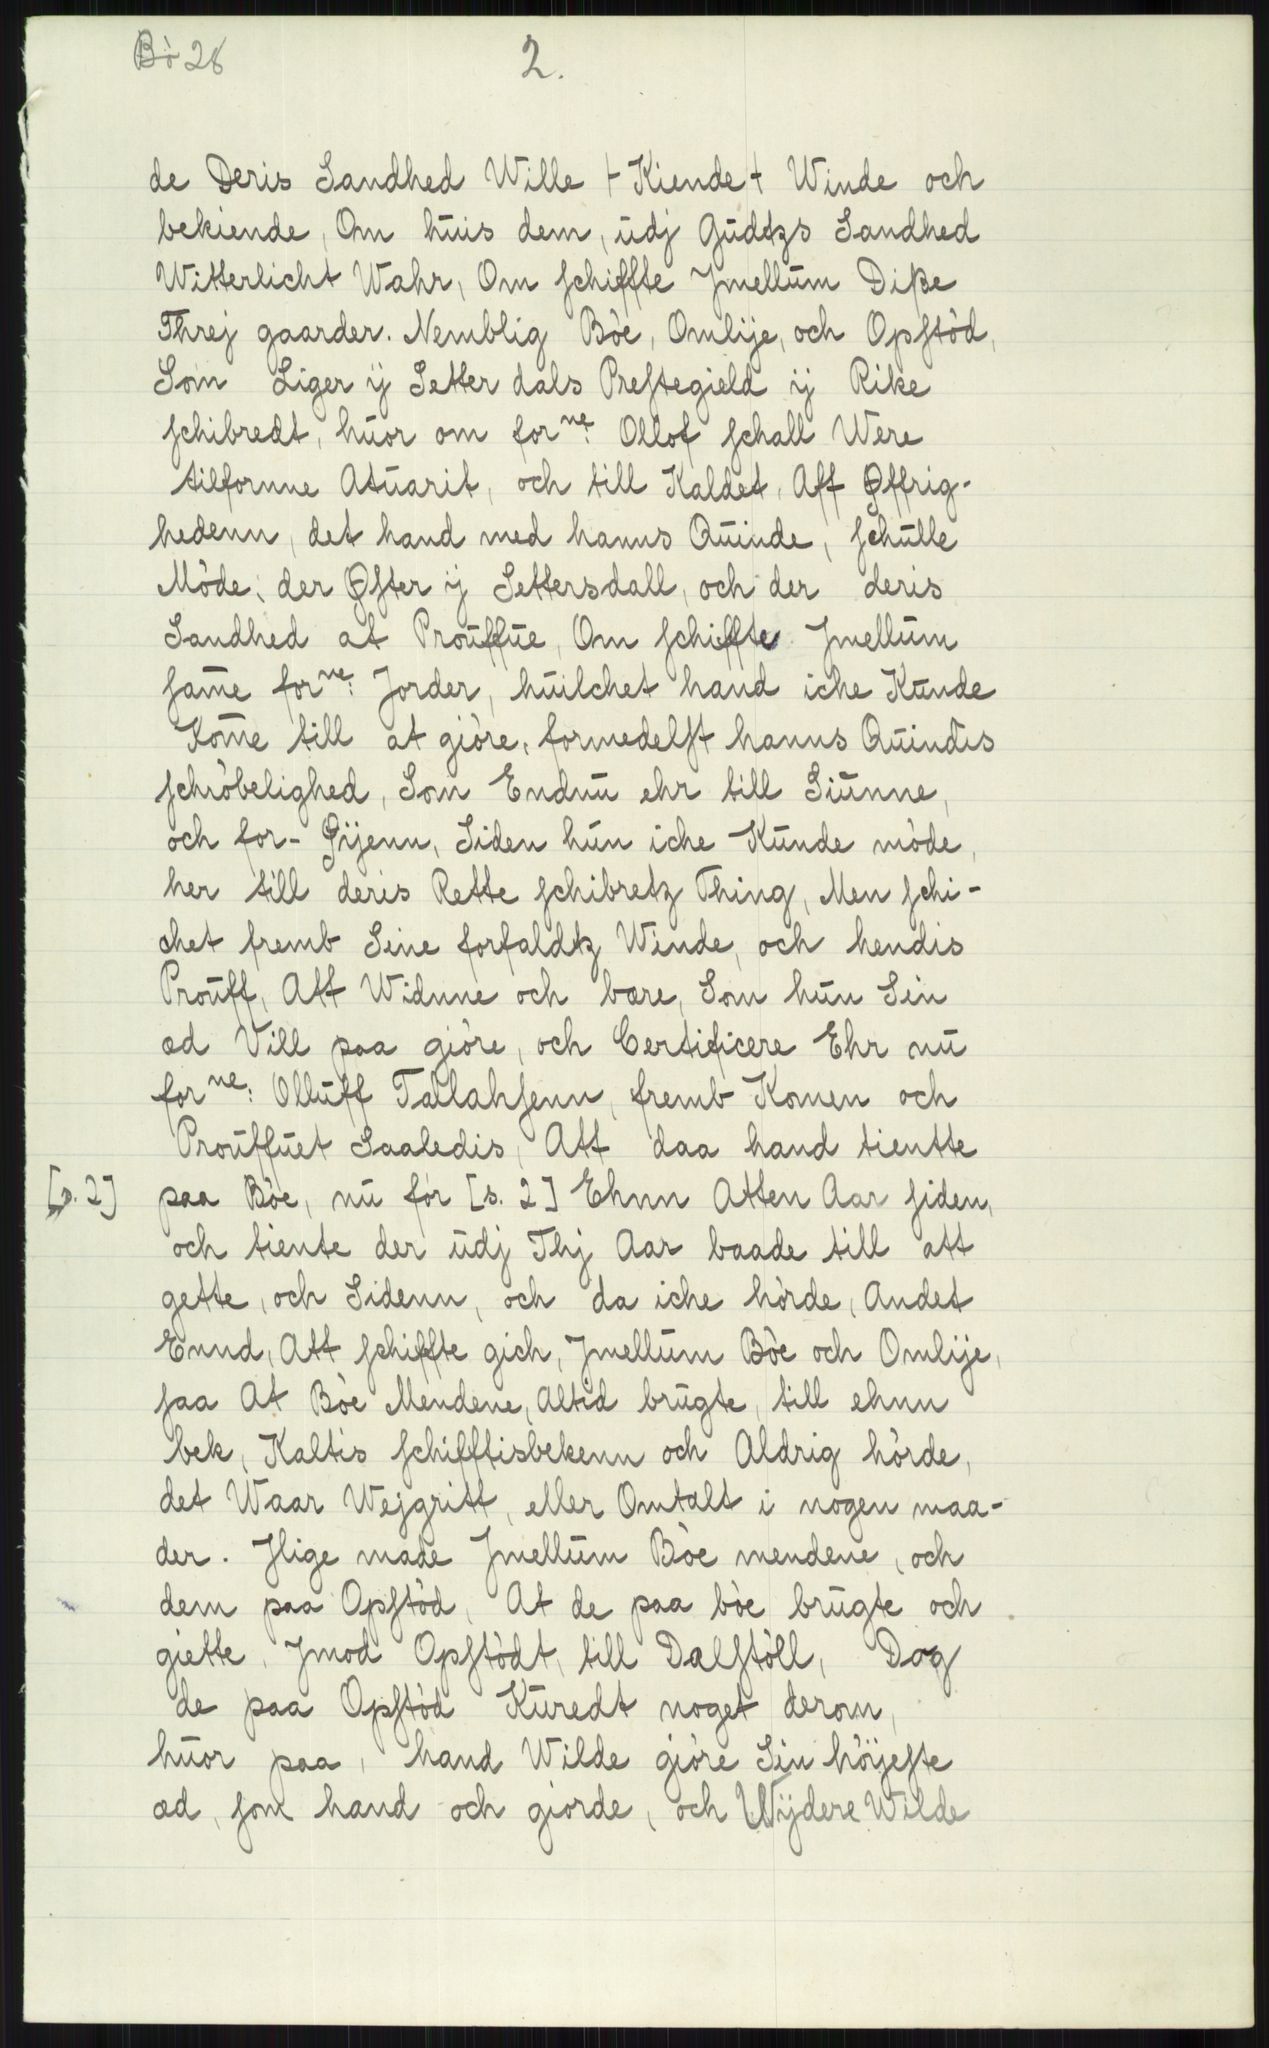 Bò 28
2.
de Deris Sandhed Wille + Kiende + Winde och
bekiende, Om huis dem, udj Gudtzs Sandhed
Witterlicht Wahr, Om schiffte Jmellum Diße
Threj gaarder. Nemblig Bòe, Omlije, och Opstòd,
Som Liger ÿ Setter dals Prestegield ÿ Rike
schibredt, huor om forne: Ollof schall Were
tilfornne Atuarit, och till Kaldet, Aff Øffrig-
hedenn, det hand med hanns Quinde, schulle
Mòde, der Øfter ÿ Settersdall, och der deris
Sandhed at Prouffue, Om schiffte Jmellum
sam̄e forne: Jorder, huilchet hand iche Kunde
Kom̄e till at giòre, formedelst hanns Quindis
schròbelighed, Som Endnu ehr till Siunne,
och for- Øÿenn, Siden hun iche Kunde mòde,
her till deris Rette schibretz Thing, Men schi-
chet fremb Sine forfaldtz Winde, och hendis
Prouff, Att Widnne och bære, Som hun Sin
æd Vill paa giòre, och Certificere Ehr nu
forne: Olluff Tallahsenn, fremb Komen och
Prouffuet Saaledis, Att daa hand tientte
[s. 2] paa Bòe, nu for [s. 2] Ehnn Atten Aar siden,
och tiente der udj Thj Aar baade till att
gette, och Sidenn, och da iche hòrde, Andet
Ennd, Att schiffte gich, Jmellum Bòe och Omlije,
saa At Bòe Mendene, Altid brugte, till ehnn
bek, Kaltis schifftisbekenn och Aldrig hòrde,
det Waar Wejgritt, eller Omtalt i nogen maa-
der. Jlige made Jmellum Bòe mendene, och
dem paa Opstòd, At de paa bòe brugte och
giette, Jmod Opstòdt, till Dalstòll, Dog
de paa Opstòd Kuredt noget derom,
huor paa, hand Wilde giòre Sin hòÿeste
æd, som hand och giorde, och Wÿdere Wilde